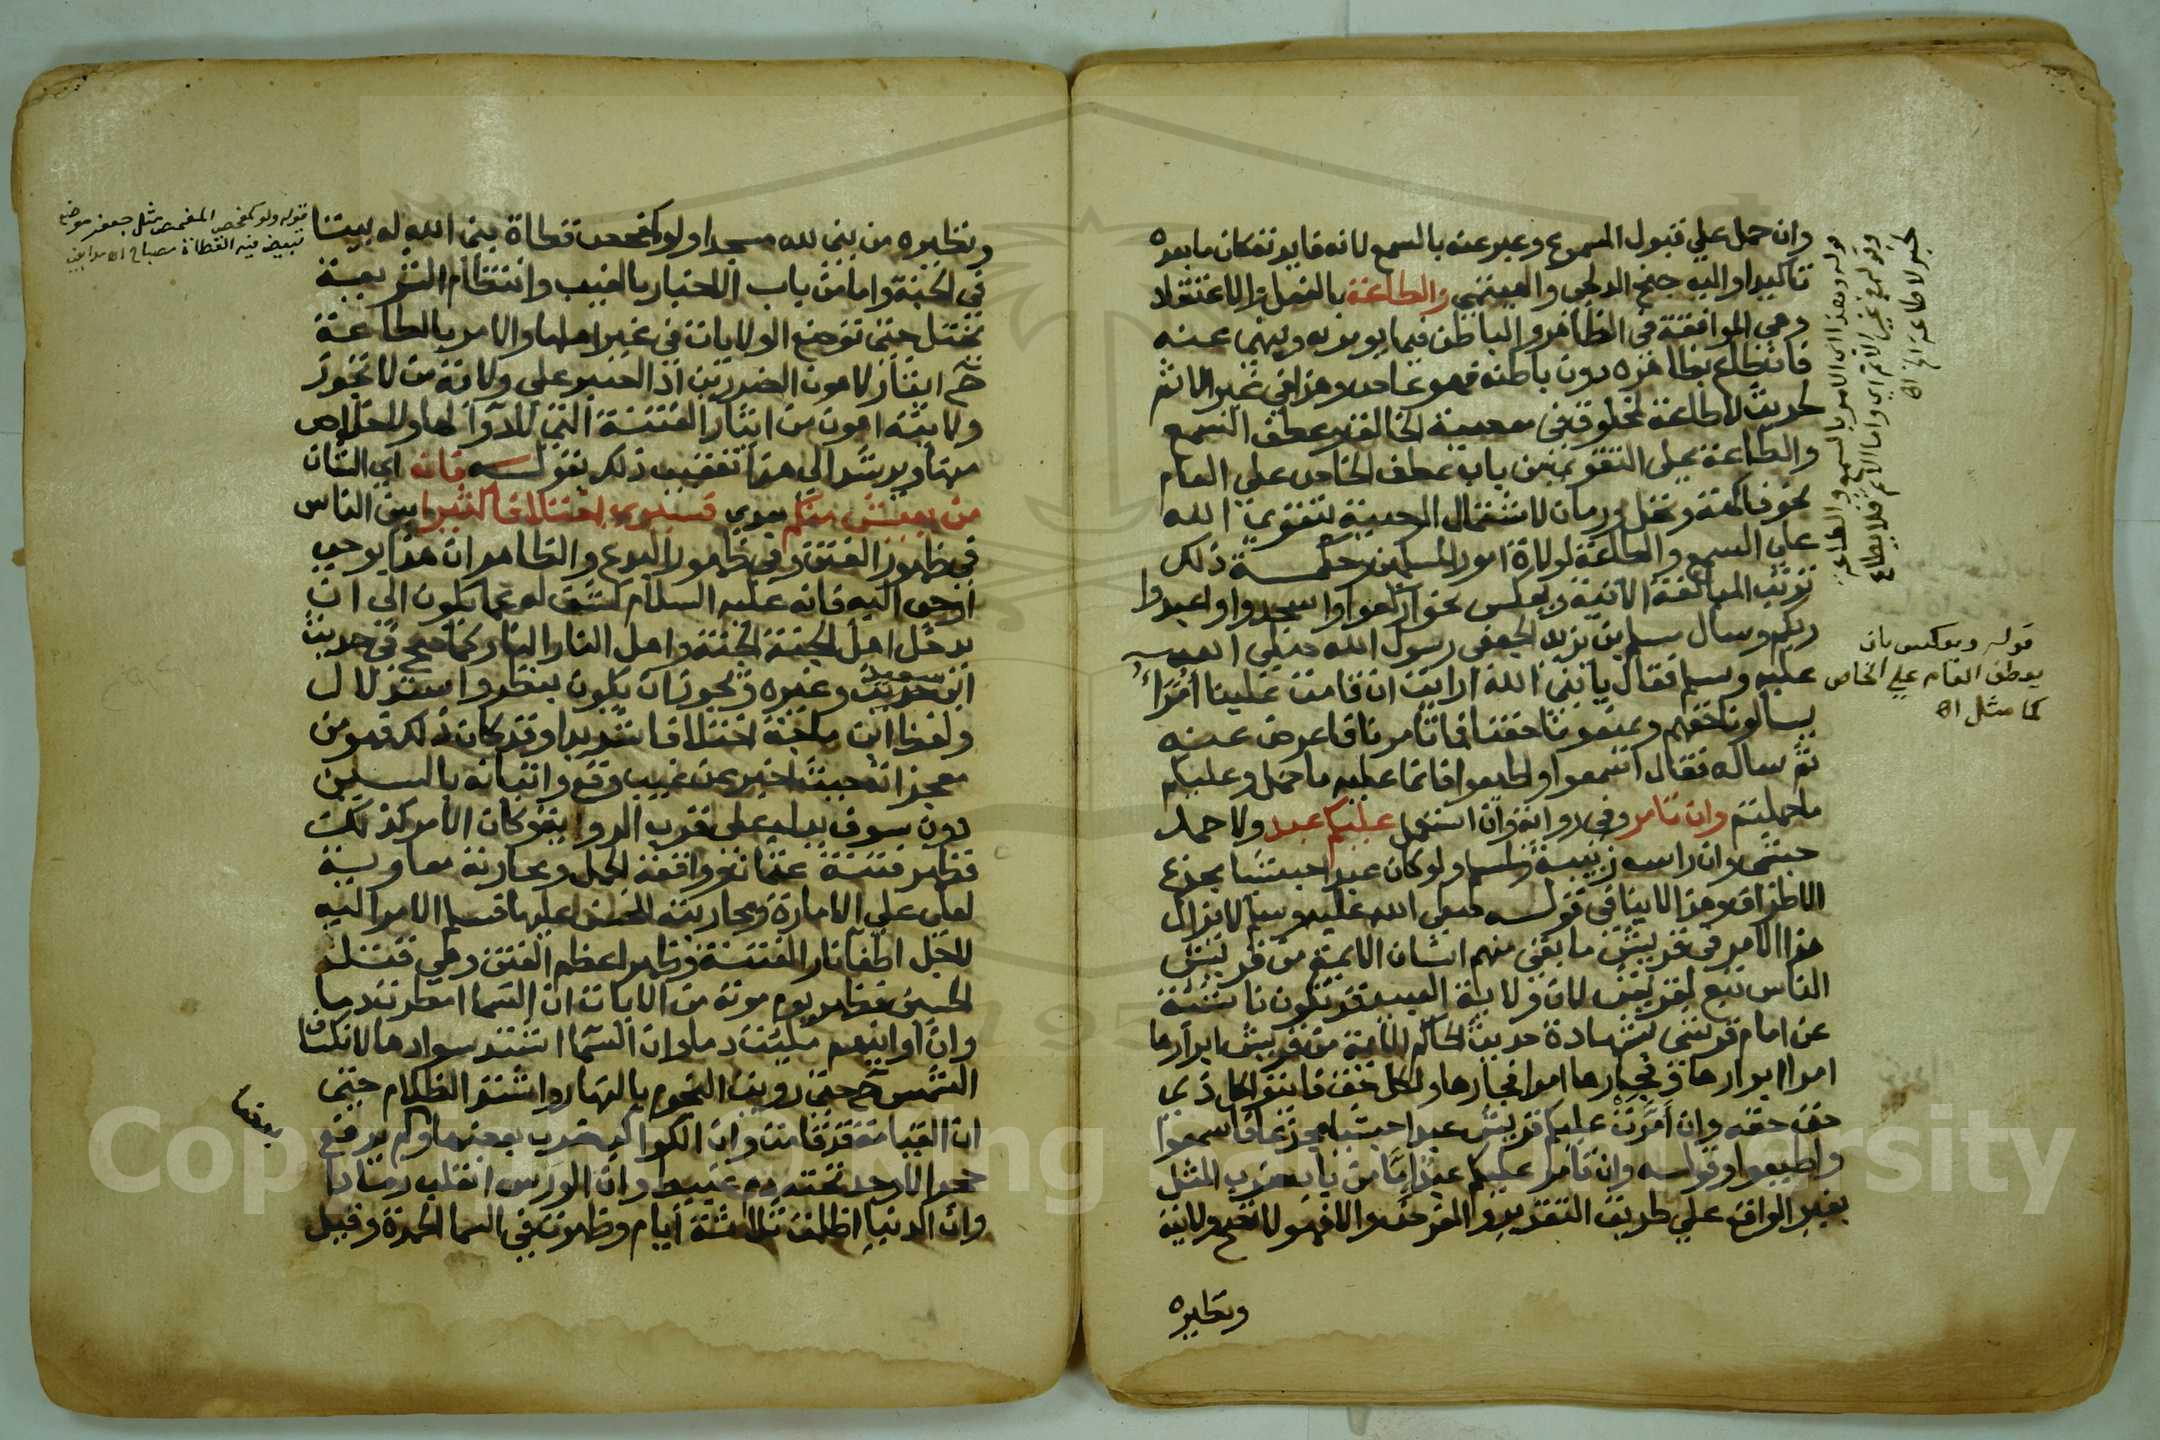 وان حمل علي قبول المسموع وعبر عنه بالسمع لانه فايدته كان ما بعده
تاكيدا واليه جنح الدلجى والهيتمي والطاعة بالفعل والاعتقاد
وهي الموافقة في الظاهر والباطن فيما يومر به وينهى عنه
فان طاع بظاهره دون باطنه فهو عاص وهذا في غير الاثم
لحديث لا طاعة لمخلوق في معصية الخالق وعطف السمع
والطاعة على التقوى من باب عطف الخاص علي العام
نحو فاكهة ونخل ورمان لاشتمال الوصية بتقوى الله
على السمع والطاعة لولاة امور المسلمين وحكمة ذلك
ترتب المبالغة الاتية وبعكس نحو اركعوا واسجدوا واعبدوا
ربكم وسال سلمة بن يزيد الجعفى رسول الله صلى الله
عليه وسلم فقال يا نبي الله ارايت ان قامت علينا امراء
يسالونا حقهم ويمنعونا حقنا فما تامرنا فاعرض عنه
ثم ساله فقال اسمعوا واطيعوا فانما عليهم ما حمل وعليكم
ما حملتم وان تامر وفي رواية وان استعمل عليكم عبد ولاحمد
حبشي وان راسه زبيبة ولمسلم ولو كان عبدا حبشيا مجدع
الاطراف وهذا لا ينافى قوله صلى الله عليه وسلم لا يزال
هذا الامر في قريش ما بقي منهم اثنان الائمة من قريش
الناس تبع لقريش لان ولاية العبد قد تكون ناشئة
عن امام قرشى بشهادة حديث الحاكم الائمة من قريش ابرارها
امرا ابرارها وفجارها امرا فجارها ولكل حق فاتوا كل ذى
حق حقه وان امرت عليكم قريش عبدا حبشيا مجدعا فاسمعوا
واطيعوا وقوله وان تامر عليكم عبد اما من باب ضرب المثل
بغير الواقع علي طريق التقدير والفرض والا فهو لا تصح ولايته
ونظيره
قوله وبعكس بان
يعطف العام علي الخاص
كما مثل اه
ونظيره من بنى لله مسجدا ولو كمفحص قطاة بنى الله له بيتا
في الجنة واما من باب الاخبار بالغيب وانتظام الشريعة
تختل حتى توضع الولايات في غير اهلها والامر بالطاعة
ح ايثار لاهون الضررين اذ الصبر على ولاية من لا تجوز
ولايته اهون من ايثار الفتنة التي لا دوا لها ولا خلاص
منها ويرشد الى هذا تعقيب ذلك بقوله فانه اي الشان
من يعش منكم بعدي فسيرى اختلافا كثيرا بين الناس
في ظهور الفتن وفي ظهور البدع والظاهر ان هذا بوحي
اوحى اليه فانه عليه السلام كشف له عما يكون الى ان
يدخل اهل الجنة الجنة واهل النار النار كما صح في حديث
ابى سعيد وغيره ويجوز ان يكون بنظر واستدلال
ولفظ ابن ماجة اختلافا شديدا وقد كان ذلك فهو من
معجزاته حيث اخبر عن غيب وقع واتيانه بالسين
دون سوف يدل على قرب الروية وكان الامر كذلك
فظهر فتنة عثمان وواقعة الجمل ومحاربة معاوية
لعلي علي الامارة ومحاربته للحسن عليها فسلم الامر اليه
لاجل اطفا نار الفتنة وظهر اعظم الفتن وهي قتلة
الحسين فظهر يوم موته من الايات ان السما امطرت دما
وان اوانيهم ملئت دما وان السما اشتد سوادها لانكساف
الشمس ح حتى رويت النجوم بالنهار واشتد الظلام حتى
ان القيامة قد قامت وان الكواكب ضرب بعضها ولم يرفع
حجر الا وجد تحته دم عبيط وان الورس انقلب رمادا
وان الدنيا اظلمت ثلاثة ايام وظهرت في السما الحمرة وقيل
قوله ولو كمفحص المفحص مثل جعفر موضع
تبيض فيه القطاة مصباح اه مدابغي